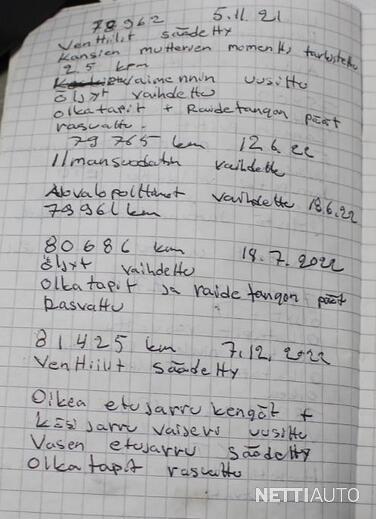 78962 5.11.21
Venttiilit säädetty
Kansien mutterien momentti tarkistettu
2.5 kpm
vaimennin uusittu
öljyt vaihdettu
olkatapit + Raidetangon päät
rasvattu
79765 km 12.6.22
Ilmansuodatin vaihdettu
Ajovalopolttimot vaihdettu 18.6.22
79961 km
80686 km 18.7.2022
öljyt vaihdettu
olkatapit ja raidetangon päät
Rasvattu
81425 km 7.12.2022
Venttiilit säädetty
Oikea etujarru kengät +
käsijarru vaijeri uusittu
Vasen etujarru säädetty
Olkatapit rasvattu
NETTIAUTO